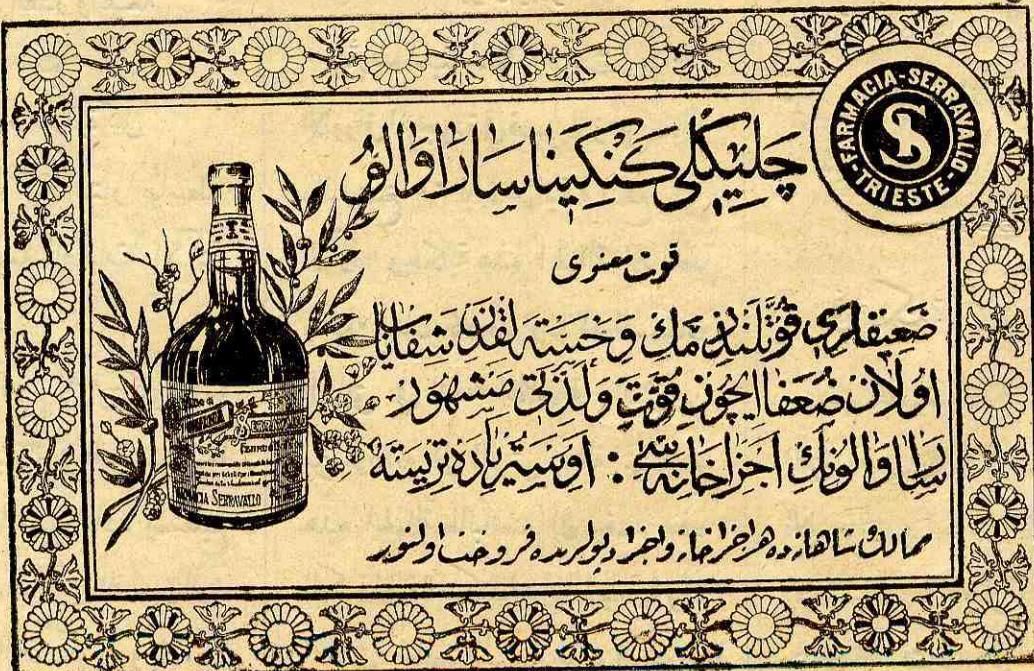 FARMACIA-SERRAVALLO
TRIESTE
S
چلیكلی كنكینا ساراوالو
قوت معنوی
ضعیفلری قوتلندیرمك و خسته لقدن شفایاب
اولان ضعفا ایچون قوت ولذتی مشهور
ساراوالونك اجزاخانه سی : اوستریاده تریسته
ممالك شاهانه ده هر اجزاخانه واجزا دپولرنده فروخت اولنور
SERRAVALLO
FARMACIA SERRAVALLO